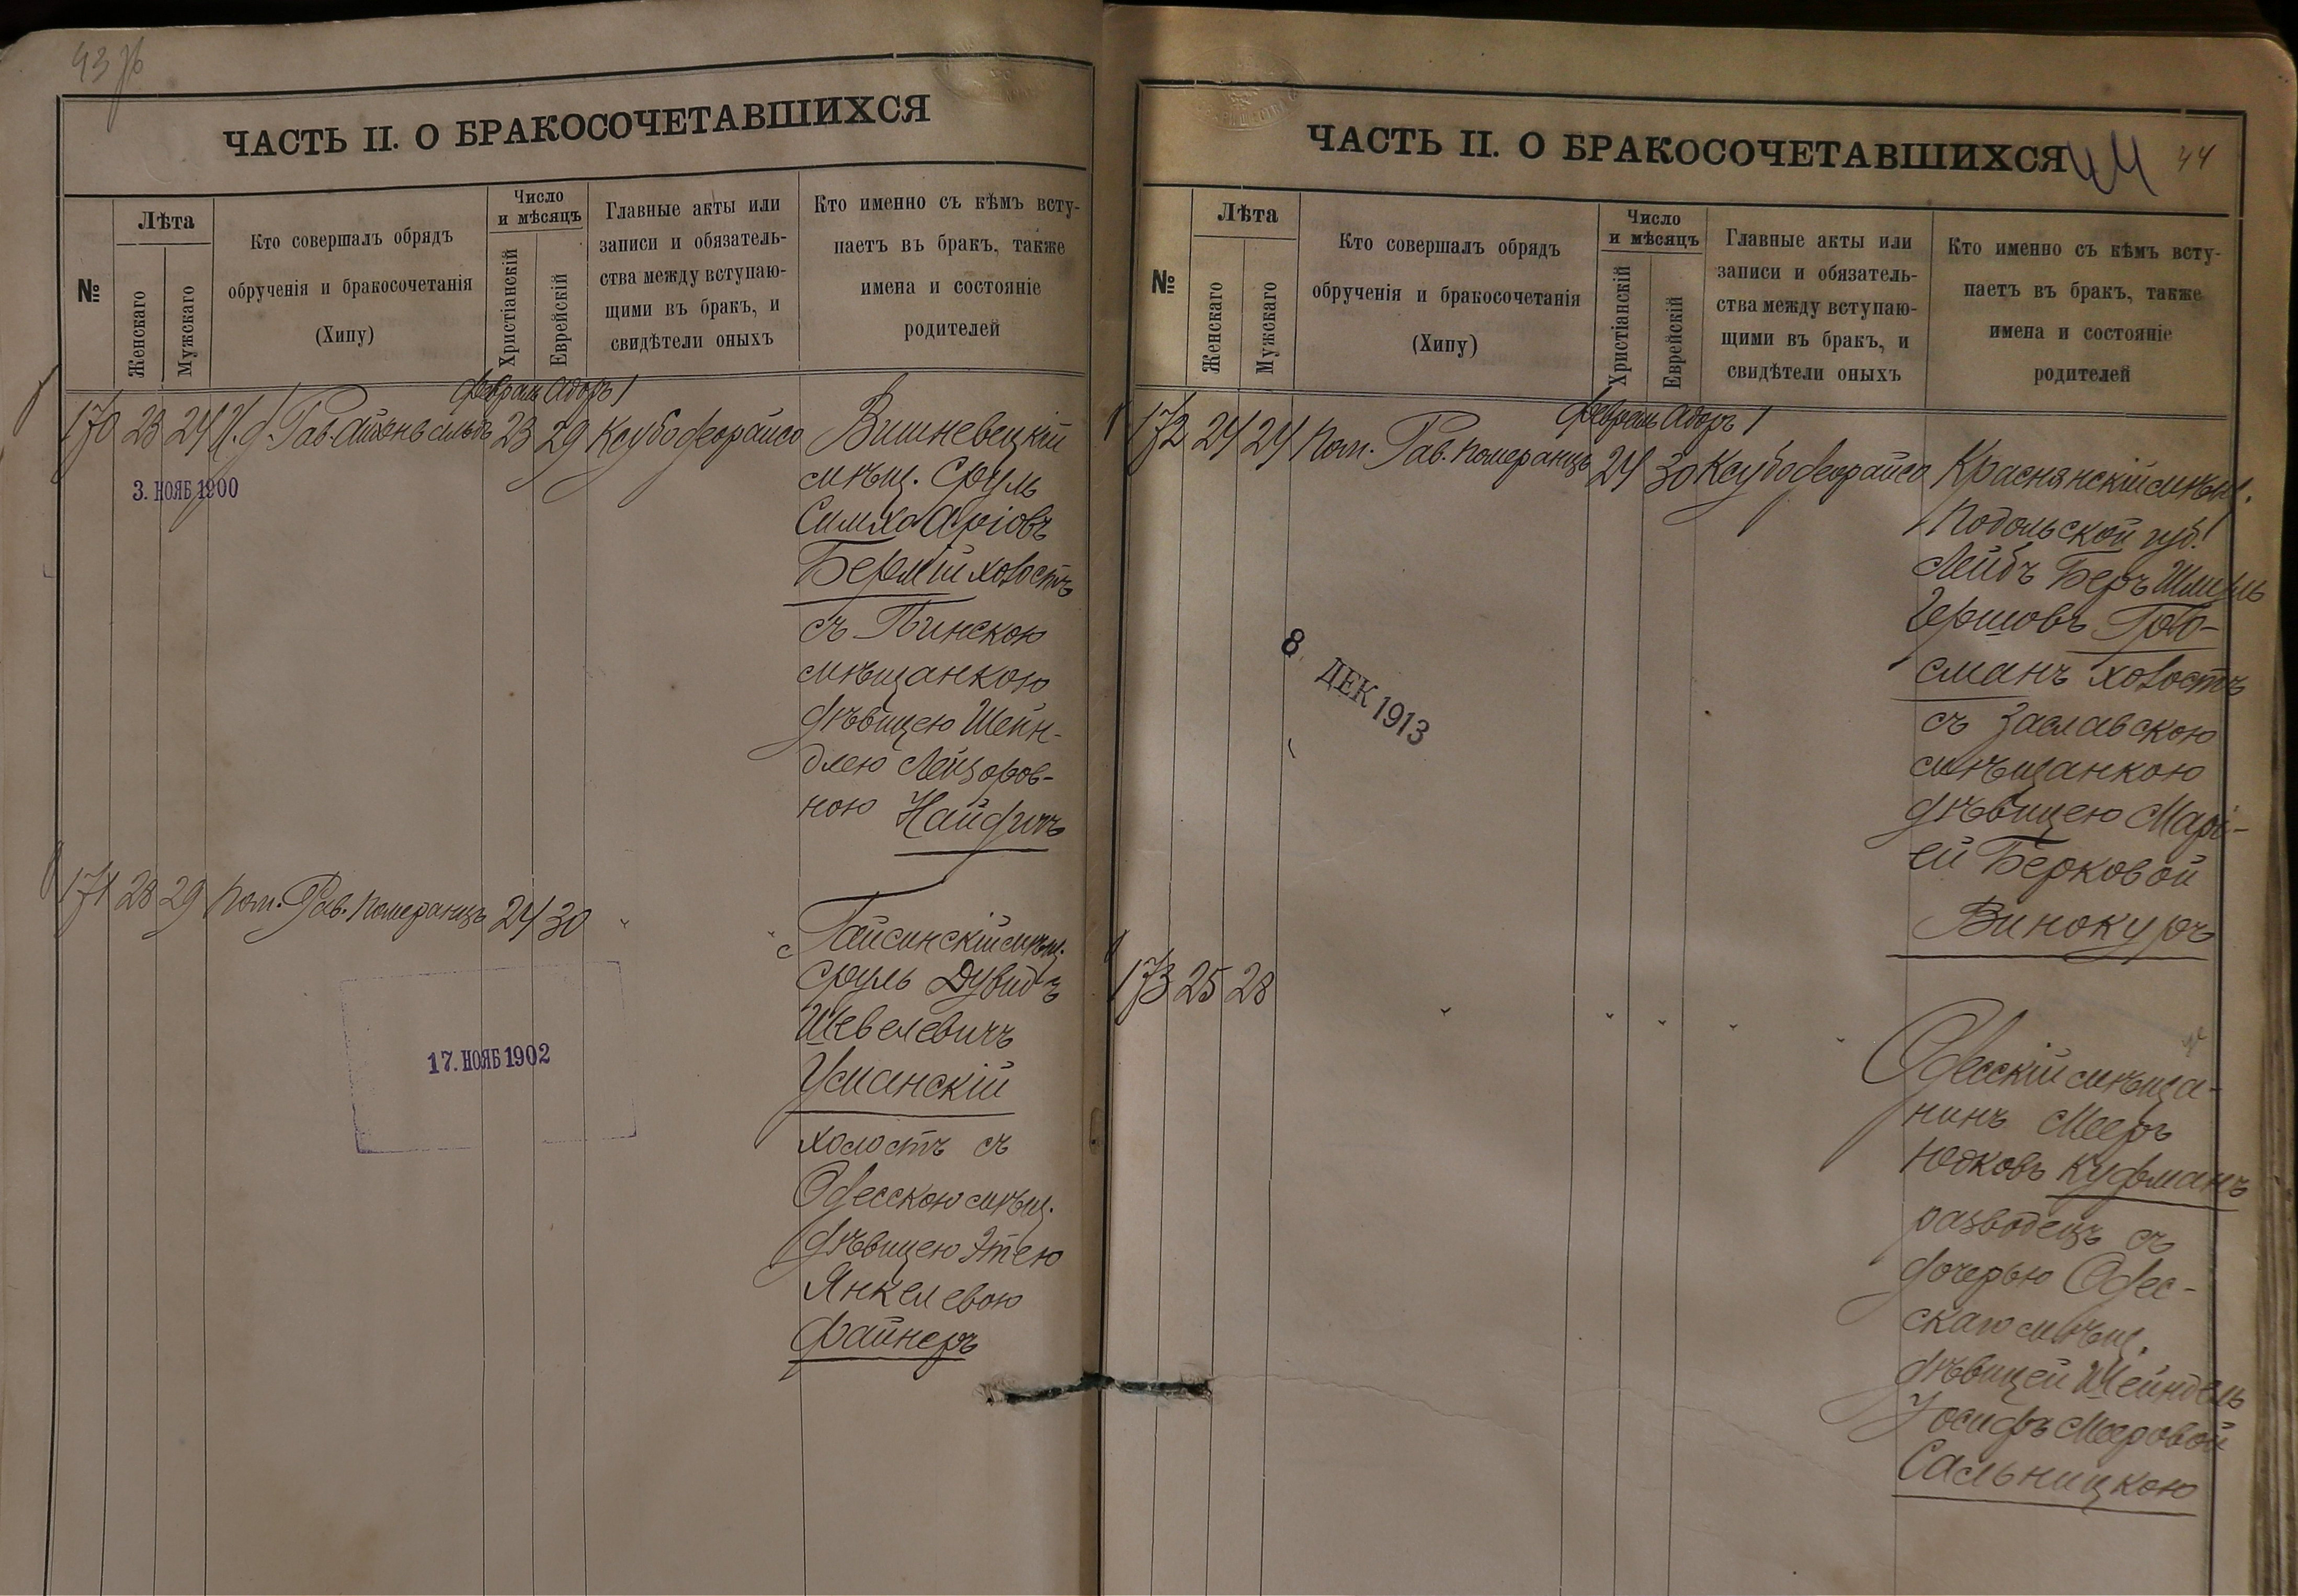 43 об
ЧАСТЬ II. О БРАКОСОЧЕТАВШИХСЯ
№
Лѣта
Женскаго
Мужскаго
Кто совершалъ обрядъ
обрученія и бракосочетанія
(Хипу)
Число
и мѣсяцъ
Христіанскій
Еврейскій
Главные акты или
записи и обязатель-
ства между вступаю-
щими въ бракъ, и
свидѣтели оныхъ
Кто именно съ кѣмъ всту-
паетъ въ бракъ, также
имена и состояніе
родителей
Февраль Адоръ 1
170 23 24 И. д. Рав. 23 29 Ксубо деорайсо
3. НОЯБ 1900
Вишневецкій
мѣщ. Сруль
Симха Аріовъ
холостъ
съ Пинскою
мѣщанкою
дѣвицею Шейн-
длею Лейзоров-
ною Найдичъ
171 28 29 Пом. Рав. Померанцъ 24 30 " "
17. НОЯБ 1902
Гайсинскій мѣщ.
Сруль Дувидъ
Шевелевичъ
Уманскій
холостъ съ
Одесскою мѣщ.
дѣвицею Этею
Янкелевою
Файнеръ
ЧАСТЬ II. О БРАКОСОЧЕТАВШИХСЯ
44
44
№
Лѣта
Женскаго
Мужскаго
Кто совершалъ обрядъ
обрученія и бракосочетанія
(Хипу)
Число
и мѣсяцъ
Христіанскій
Еврейскій
Главные акты или
записи и обязатель-
ства между вступаю-
щими въ бракъ, и
свидѣтели оныхъ
Кто именно съ кѣмъ всту-
паетъ въ бракъ, также
имена и состояніе
родителей
Февраль Адоръ 1
172 24 24 Пом. Рав. Померанцъ 24 30 Ксубо деорайсо
8 ДЕК 1913
Краснянскій мѣщ.
Подольской губ.
Лейбъ Беръ Шмиль
Гершовъ
холостъ
съ Заславскою
мѣщанкою
дѣвицею Марі-
ей Берковой
Винокуръ
173 25 28 " " " " "
Одесскій мѣща-
нинъ Мееръ
Юдковъ Куфманъ
разводецъ съ
дочерью Одес-
скаго мѣщ.
дѣвицей Шейндель
Іосифъ Мееровой
Сальницкою